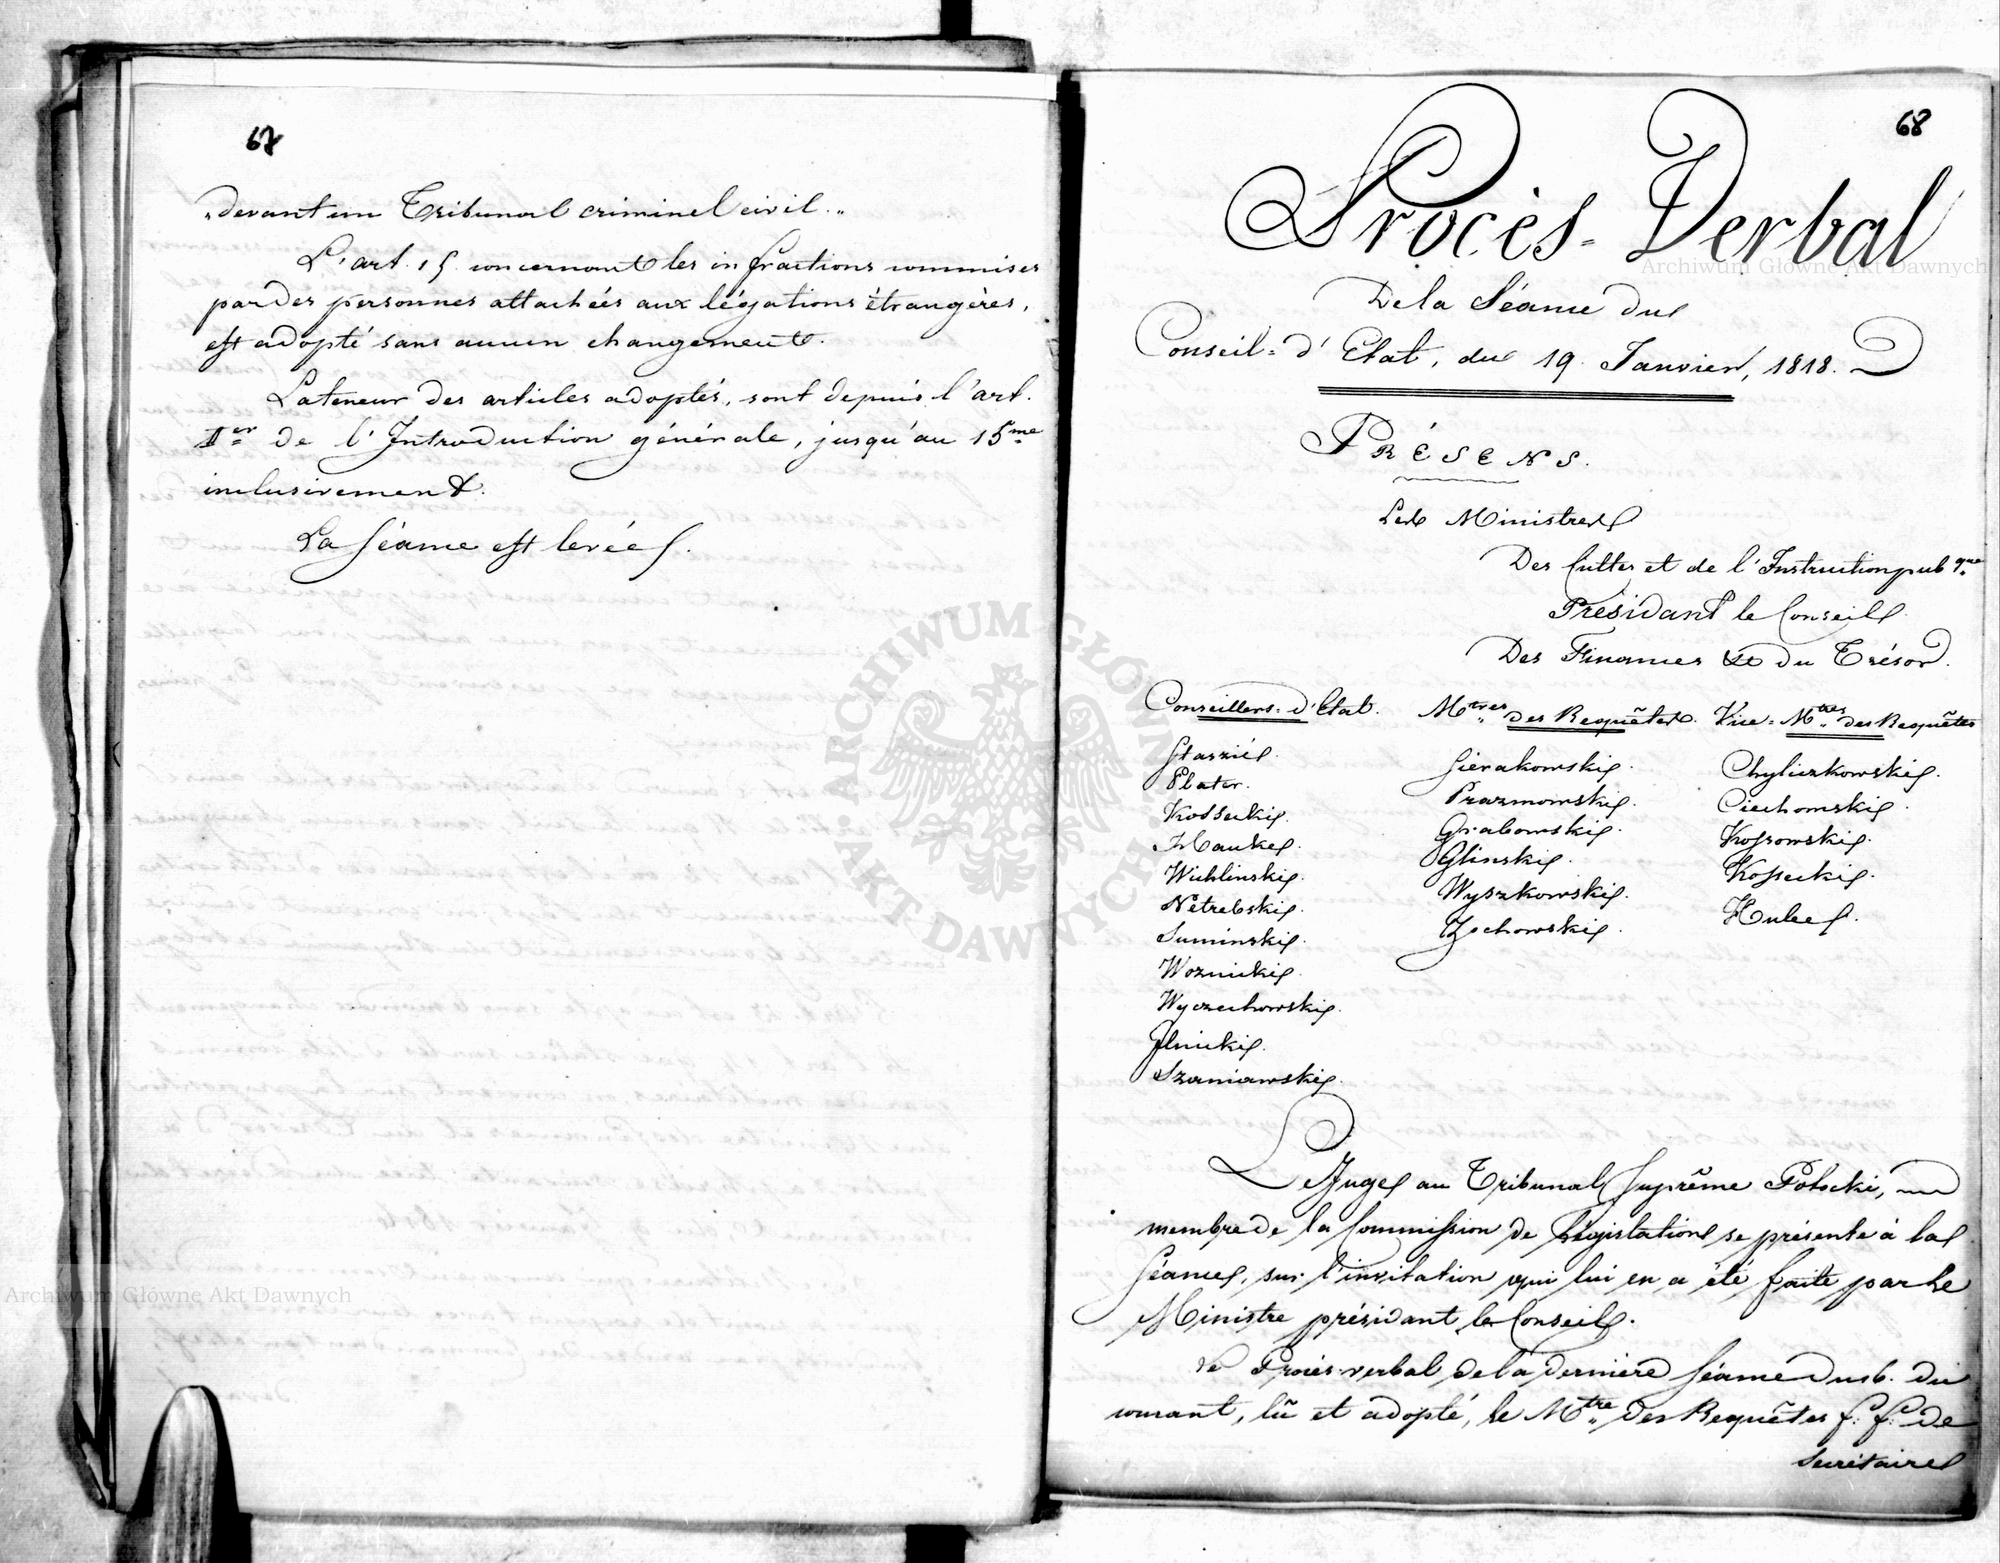 67
„devant un Tribunal criminel civil.„
L'art. 15. concernant les infractions commises
par des personnes attachées aux légations étrangères,
est adopté sans aucun changement.
La teneur des articles adoptés, sont depuis l'art.
1er de l'Introduction générale, jusqu'au 15me
inclusivement.
La Séance est levée.
68
Procès-Verbal
De la Séance du
Conseil-d'Etat, du 19. Janvier, 1818.
PRÉSENS.
Les Ministres
Des Cultes et de l'Instruction pubque
Présidant le Conseil
Des Finances et du Trésor.
Conseillers-d'Etat.
Staszic.
Plater.
Kossecki.
Hauke.
Wichlinski.
Nétrebski.
Suminski.
Woznicki.
Wyczechowski.
Jlnicki.
Szaniawski.
Mtres des Requêtes.
Sierakowski.
Prazmowski.
Grabowski.
Glinski.
Wyszkowski.
Zochowski.
Vice-Mtres des Requêtes
Chyliczkowski.
Ciechomski.
Kossowski.
Kossecki.
Hube.
Le Juge au Tribunal Suprême Potocki, un
membre de la Commission de Législation se présente à la
Séance, sur l'invitation qui lui en a été faite par le
Ministre présidant le Conseil.
Le Procès-verbal de la dernière Séance du 6. du
courant, lû et adopté, le Mtre des Requêtes f. f. de
Secrétaire
Archiwum Główne Akt Dawnych
Archiwum Główne Akt Dawnych
ARCHIWUM GŁÓWNE AKT DAWNYCH